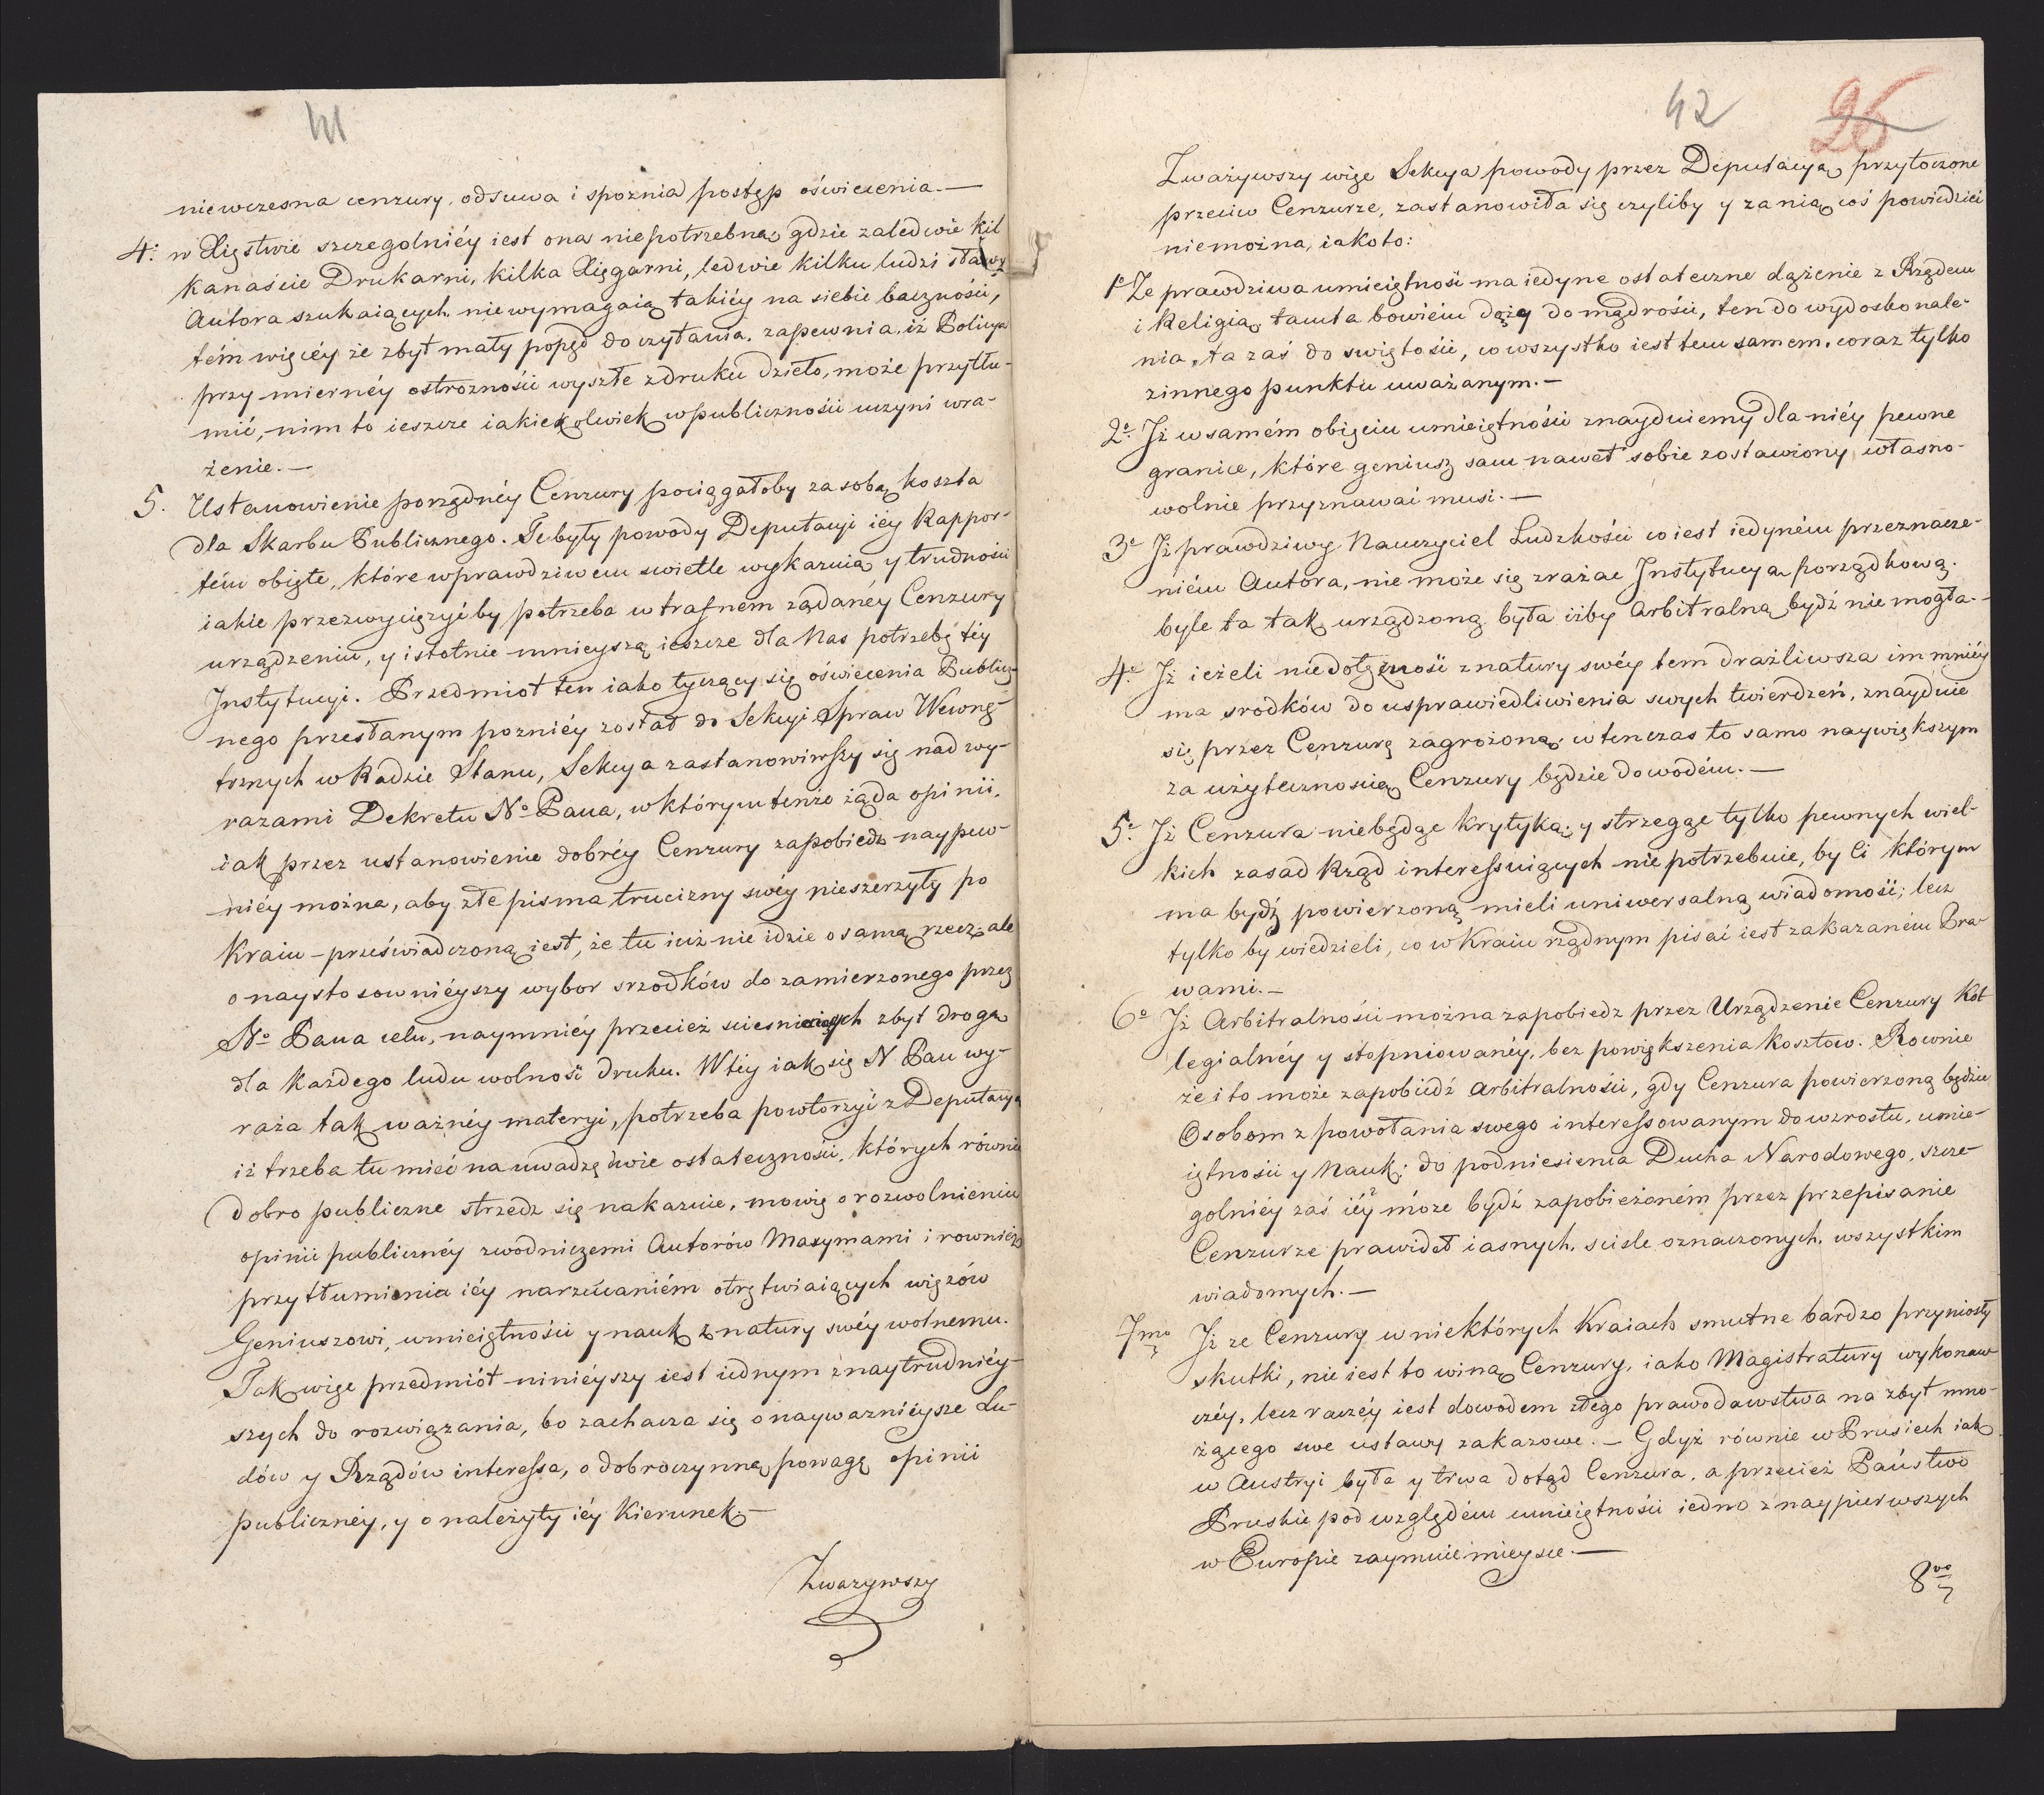 41
niewczesna cenzury, odsuwa i spoznia postęp oświecenia.—
4. w Xięstwie szczegolniéy iest ona niepotrzebną, gdzie zaledwie kil
kanaście Drukarni, kilka Xięgarni, ledwie kilku ludzi sławy
Autora szukaiących niewymagaią takiéy na siebie baczności,
tém więcéy że zbyt mały popęd do czytania, zapewnia, iż Policya
przy miernéy ostrozności wyszłe z druku dzieło, może przytłu-
mić, nim to ieszcze iakiekolwiek w publiczności uczyni wra-
żenie.—
5. Ustanowienie porządnéy Cenzury pociągałoby za sobą koszta
dla Skarbu Publicznego. Te były powody Deputacyi iéy Rappor-
tém obięte, które w prawdziwem swietle wykazuią y trudności
iakie przezwyciężyć by potrzeba w trafnem żądanéy Cenzury
urządzeniu, y istotnie mnieyszą ieszcze dla Nas potrzebę téy
Instytucyi. Przedmiot ten iako tyczący się oświecenia Publicz-
nego przesłanym pozniéy został do Sekcyi Spraw Wewnę-
trznych w Radzie Stanu, Sekcya zastanowiwszy się nad wy-
razami Dekretu No Pana, w którym tenże żąda opinii,
iak przez ustanowienie dobréy Cenzury zapobiedz naypew-
niéy można, aby złe pisma trucizny swéy nieszerzyły po
Kraiu – przeświadczoną iest, że tu iuż nie idzie o samą rzecz, ale
o naystosownieyszy wybor srzodków do zamierzonego przez
No Pana celu, naymniéy przecież sciesniaiących zbyt drogą
dla każdego ludu wolność druku. W téy iak się N Pan wy-
raża tak ważnéy materyi, potrzeba powtorzyć z Deputacyą
iż trzeba tu mieć na uwadzę dwie ostateczności, których równie
dobro publiczne strzedz się nakazuie, mowię o rozwolnieniu
opinii publicznéy zwodniczemi Autorów Maxymami i rownież
przytłumienia iéy narzucaniém otrętwiaiących więzów
Geniuszowi, umieiętności y nauk z natury swéy wolnemu.
Tak więc przedmiót ninieyszy iest iednym z naytrudniéy-
szych do rozwiązania, bo zachacza się o naywaznieysze Lu-
dów y Rządów interessa, o dobroczynną powagę opinii
publicznéy, y o należyty iéy Kierunek.—
Zwazywszy
42 26
Zważywszy więc Sekcya powody przez Deputacyą przytoczone
przeciw Cenzurze, zastanowiła się czyliby y za nią coś powiedzieć
niemożna, iako to:
1e Że prawdziwa umieiętność ma iedyne ostateczne dążenie z Rządem
i Religią, tamta bowiem dąży do mądrości, ten do wydoskonale-
nia, ta zaś do swiętości, co wszystko iest tem samem, coraz tylko
z innego punktu uważanym.—
2e Iż w samém obięciu umieiętności znayduiemy dla niéy pewne
granice, które geniusz sam nawet sobie zostawiony własno-
wolnie przyznawać musi.—
3e Iż prawdziwy Nauczyciel Ludzkości co iest iedyném przeznacze-
niém Autora, nie może się zrażac Instytucya porządkową.
byle ta tak urządzoną była iżby Arbitralną bydź nie mogła.—
4e Iż ieżeli niedołężność z natury swéy tem drażliwsza im mniéy
ma srodków do usprawiedliwienia swych twierdzeń, znayduie
się przez Cenzurę zagrożoną, wtenczas to samo naywiększym
za użytecznością Cenzury będzie dowodém.—
5e Iż Cenzura niebędąc krytyką, y strzegąc tylko pewnych wiel-
kich zasad Rząd interessuiących nie potrzebuie, by Ci którym
ma bydź powierzoną mieli uniwersalną wiadomość; lecz
tylko by wiedzieli, co w Kraiu rządnym pisać iest zakazaném Pra-
wami.—
6o Iż Arbitralności można zapobiedz przez Urządzenie Cenzury Kol-
legialnéy y stopniowanéy, bez powiększenia kosztow. Rownie
że i to może zapobiedź arbitralności, gdy Cenzura powierzoną będzie
Osobom z powołania swego interessowanym do wzrostu, umie-
iętności y Nauk; do podniesienia Ducha Narodowego, szcze-
golniéy zaś iéy móze bydź zapobieżoném przez przepisanie
Cenzurze prawideł iasnych, scisle oznaczonych, wszystkim
wiadomych.—
7mo Iż ze Cenzury w niektórych Kraiach smutne bardzo przyniosły
skutki, nie iest to winą Cenzury, iako Magistratury wykonaw-
czéy, lecz raczéy iest dowodem złego prawodawstwa na zbyt mno-
żącego swe ustawy zakazowe.— Gdyż równie w Prusiech iak
w Austryi była y trwa dotąd Cenzura, a przecież Państwo
Pruskie pod względém umieiętności iedno z naypierwszych
w Europie zaymuie mieysce.—
8vo